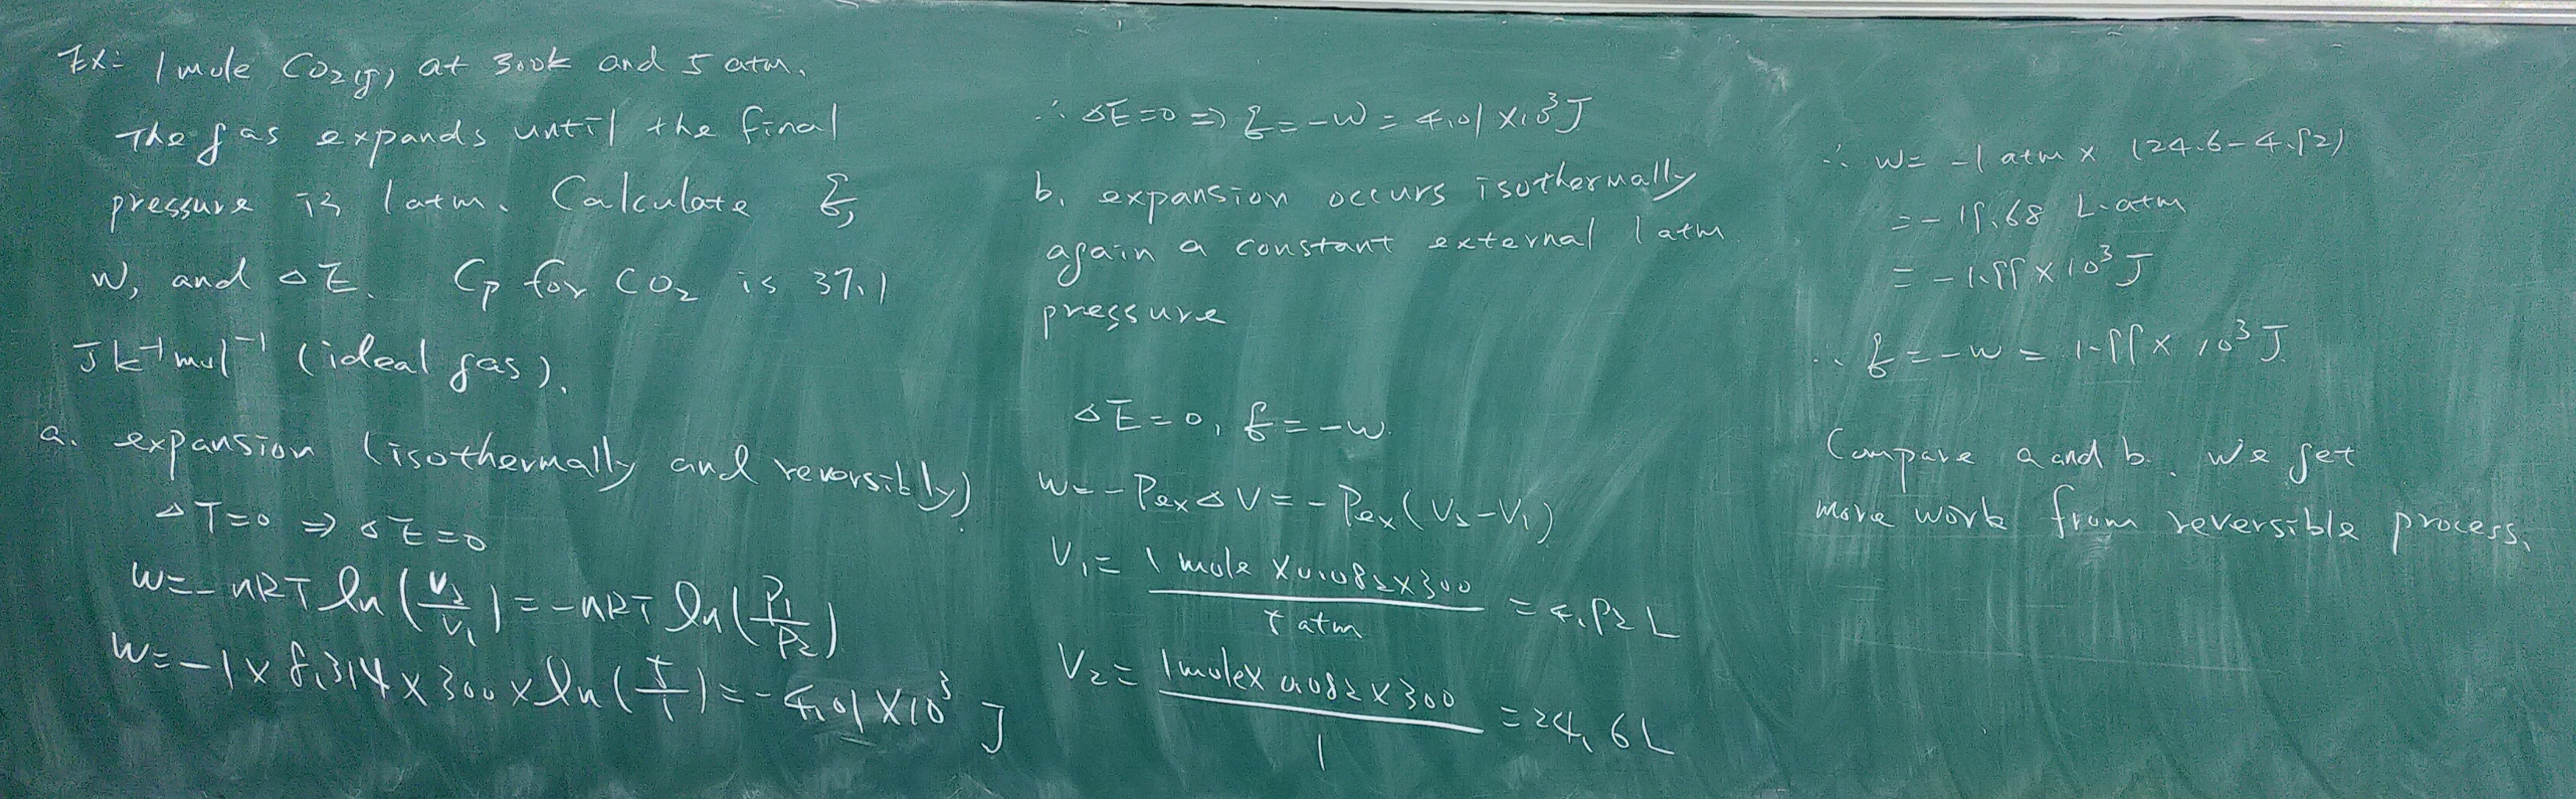 Ex: 1 mole CO₂(g), at 300k and 5 atm.
The gas expands until the final
pressure is 1 atm. Calculate q,
w, and ΔE. Cp for CO₂ is 37.1
J k⁻¹ mol⁻¹ (ideal gas).
a. expansion (isothermally and reversibly)
ΔT=0 ⇒ ΔE=0
w=-nRT ln(V₂/V₁)=-nRT ln(P₁/P₂)
w=-1×8.314×300×ln(5/1)=-4.01×10³ J
∴ ΔE=0 ⇒ q=-w=4.01×10³J
b. expansion occurs isothermally
again a constant external 1 atm
pressure
ΔE=0, q=-w.
w=-Pex ΔV=-Pex(V₂-V₁)
V₁= 1 mole×0.082×300 / 5 atm =4.92 L
V₂= 1 mole×0.082×300 / 1 =24.6 L
∴ w= -1 atm × (24.6-4.92)
=-19.68 L·atm
=-1.99×10³ J
∴ q=-w=1.99×10³ J
Compare a and b. we get
more work from reversible process.